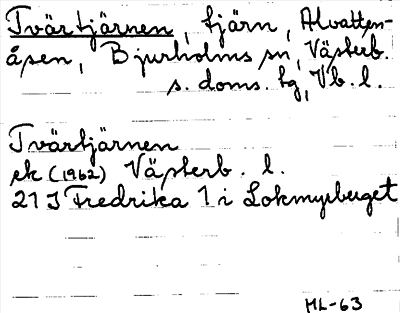 Tvärtjärnen, tjärn, Alvatten-
åsen, Bjurholms sn, Västerb.
s. doms. tg, Vb. l.
Tvärtjärnen
ek (1962) Västerb. l.
21 J Fredrika 1 i Lokmyrberget
ML-63